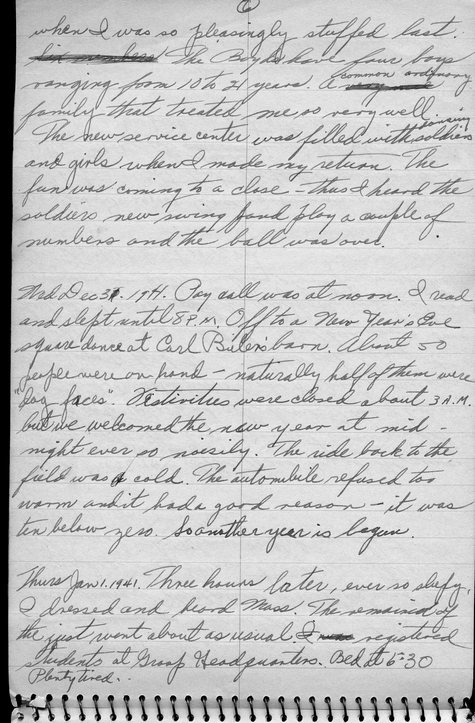 6
when I was so pleasingly stuffed last.
The Boyds have four boys
ranging from 10 to 21 years. A common ordinary
family that treated me so very well.
The new service center was filled with soldiers
and girls when I made my return. The
fun was coming to a close - thus I heard the
soldiers new swing band play a couple of
numbers and the ball was over.
Wed Dec 31. 1941. Pay call was at noon. I read
and slept until 8 P.M. Off to a New Year's Eve
square dance at Carl barn. About 50
people were on hand - naturally half of them were
faces". Festivities were closed about 3 A.M.
but we welcomed the new year at mid-
night ever so noisily. The ride back to the
field was cold. The automobile refused too
warm and it had a good reason - it was
ten below zero. So another year is begun.
Thurs Jan 1. 1941. Three hours later, ever so sleepy,
I dressed and heard Mass. The remained of
the just went about as usual I registered
students at Group Headquarters. Bed at 6:30
Plenty tired..